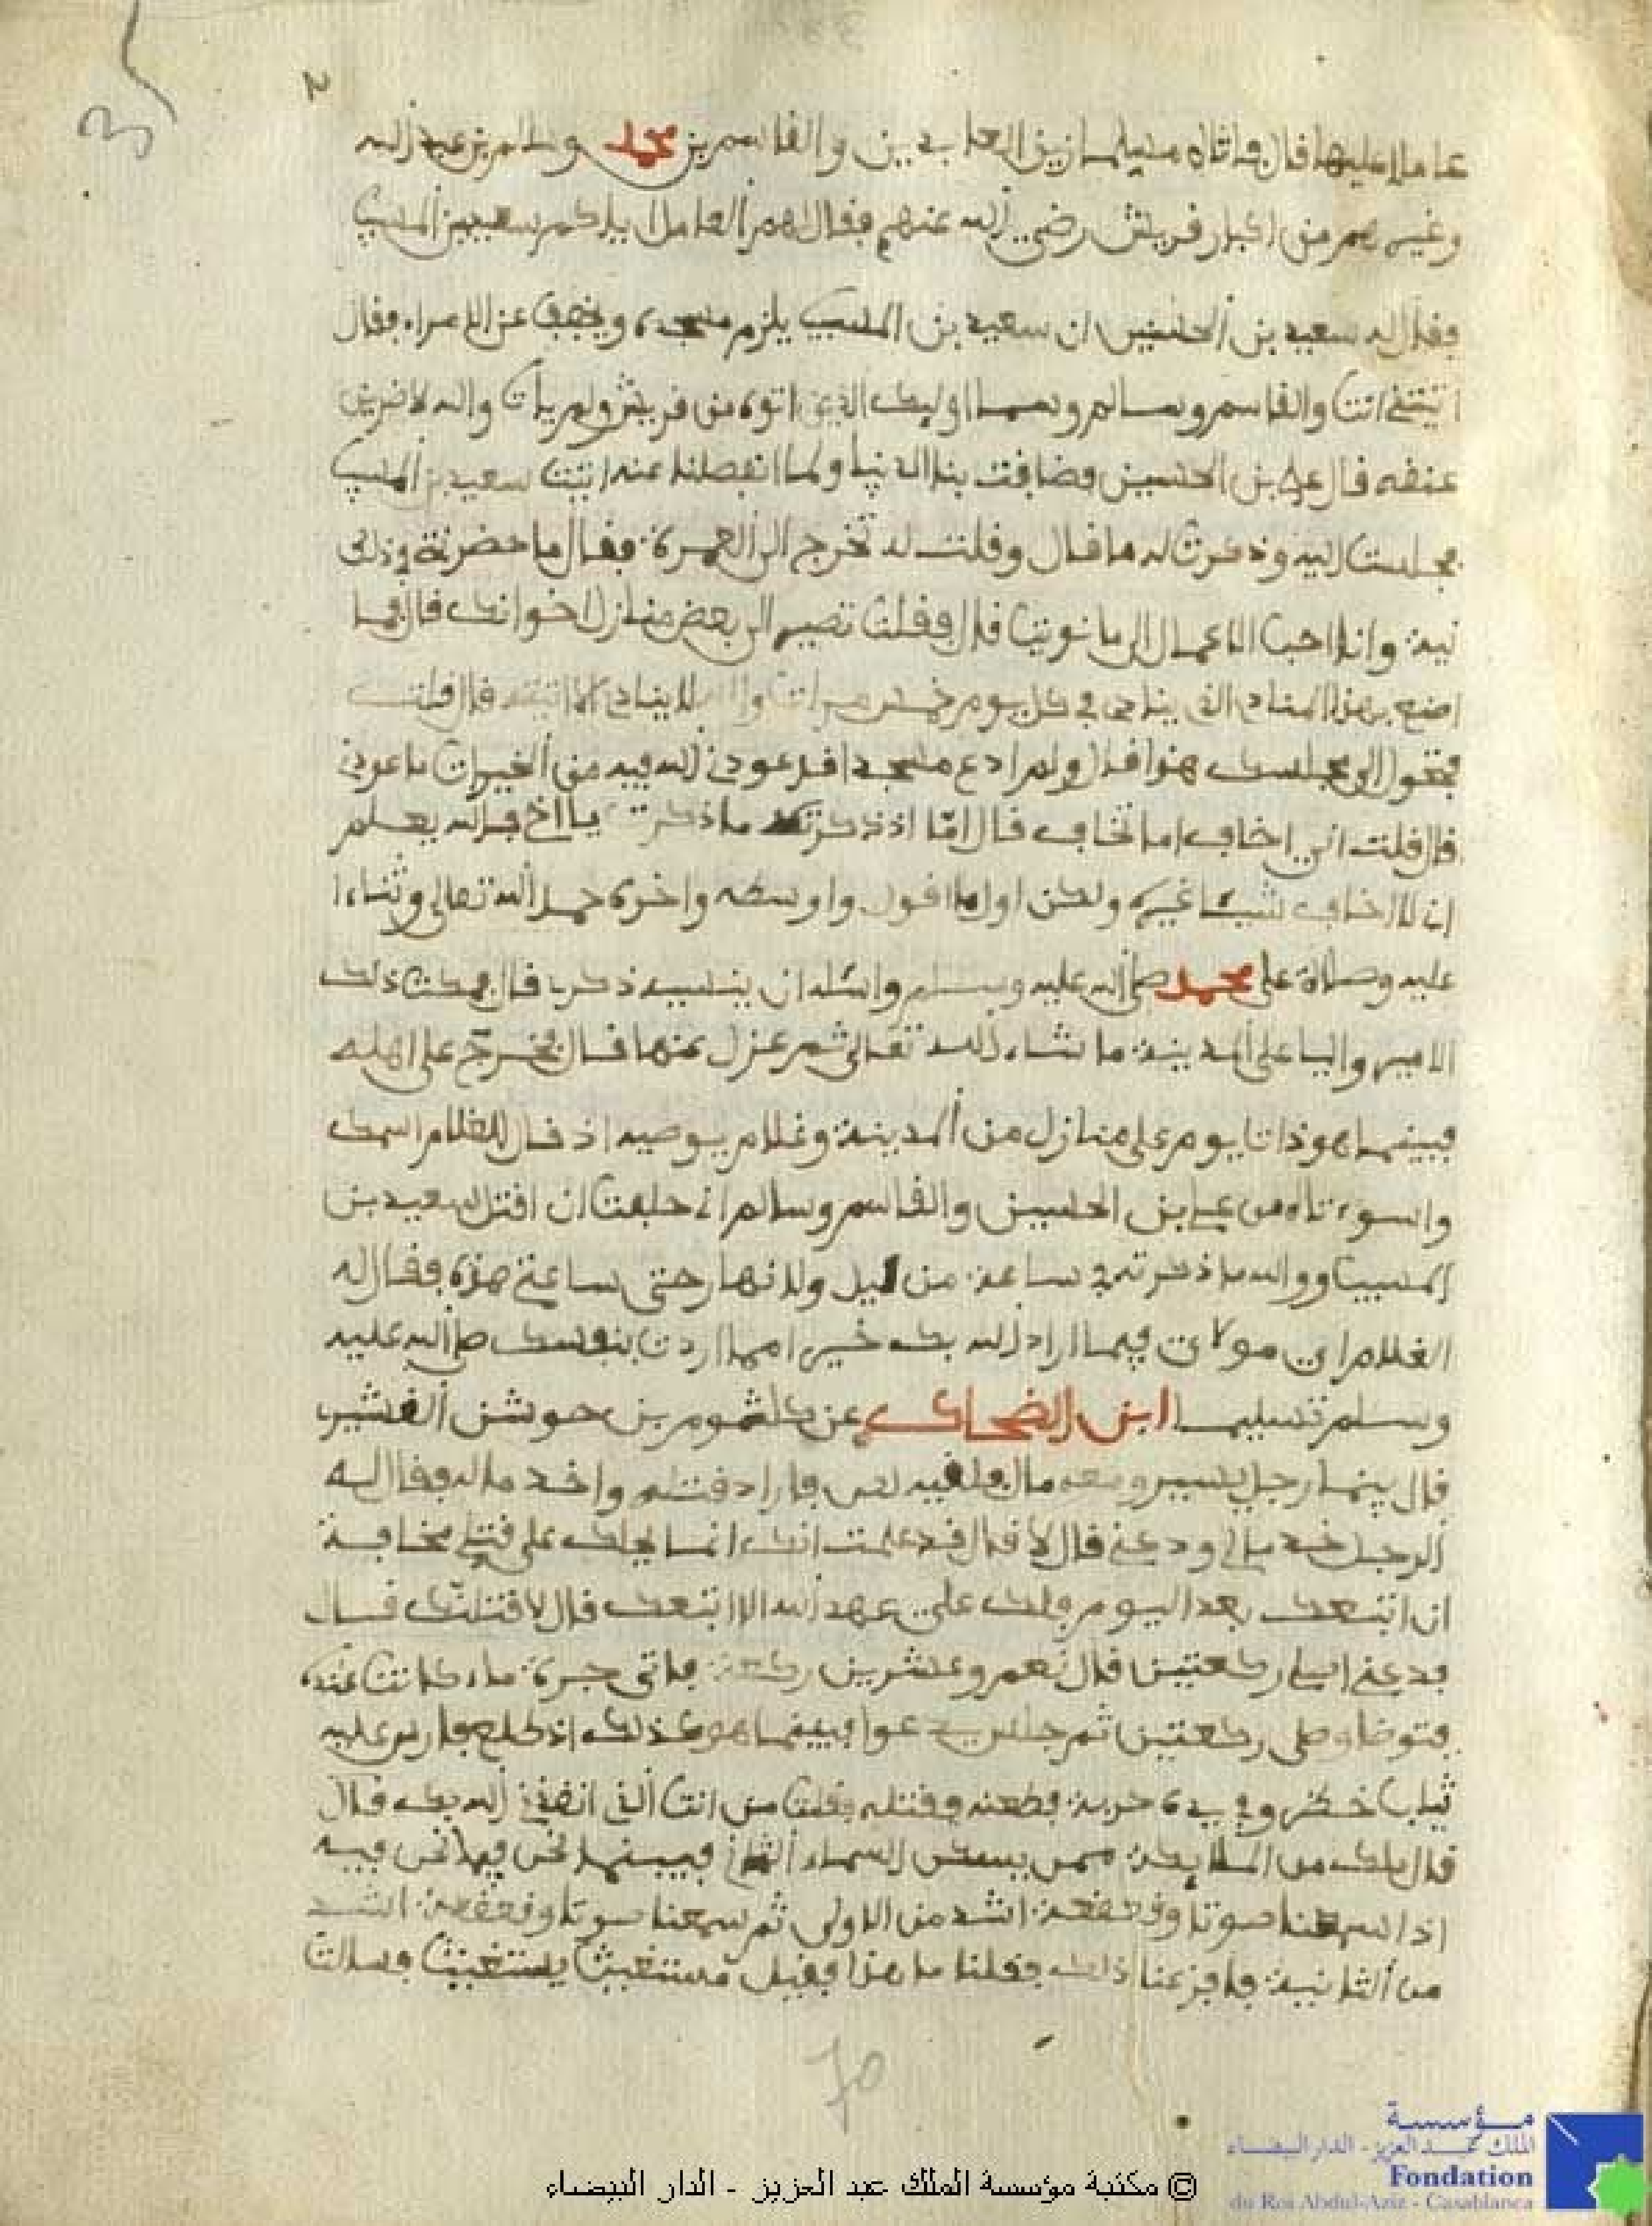 عاملا عليها قال فاتاه سليمان زين العابدين والقاسم بن محمد وسالم بن عبد الله
وغيرهم من اكبار قريش رضي الله عنهم فقال لهم العامل ايكم سعيد بن المسيب
فقال له بن الحسين ان سعيد بن المسيب يلزم مسجده ويخفف عن الامراء فقال
اتيتني انت والقاسم وسالم وسما اوليك الذين اتوه من قريش ولم يات والله لاضربن
عنقه قال علي بن الحسين فضاقت بنا الدنيا ولما انفصلنا عنه اتيت سعيد بن المسيب
فجلست اليه وذكرت له ما قال وقلت له تخرج الى العمرة فقال ما حضرتني في ذلك
نية وان احب الاعمال الى ما نويت قال فقلت تصير الى بعض منازل اخوانك قال فما
اصنع بهذا المنادي الذي ينادي في كل يوم خمس مرات والله لا ينادي الا اتيته قال قلت
فتحول الى مجلسك هذا قال ولم ادع مسجدا قد عودني الله فيه من الخيرات ما عودني
قال قلت اني اخاف اما تخاف قال اما اذ ذكرت ما ذكرت يا اخي فالله يعلم
ان لا اخاف شيئا غيره ولكن اول ما اقول واوسطه واخره حمد الله تعالى وثناء
عليه وصلاة على محمد صلى الله عليه وسلم واسئله ان ينسيه ذكري قال فمكث ذلك
الامير واليا على المدينة ما شاء الله تعالى ثم عزل عنها قال فخرج على اهله
فبينما هو ذات يوم على منازل من المدينة وغلام يوصيه اذ قال للغلام امسك
واسوءتاه من علي بن الحسين والقاسم وسالم اني حلفت ان اقتل سعيد بن
المسيب ووالله ما ذكرته في ساعة من ليل ولا نهار حتى ساعتي هذه فقال له
الغلام اي مولاي فما اراد الله بك خير امما اردت بنفسك صلى الله عليه
وسلم تسليما ابن الضحاك عن كلثوم بن حوشن القشيري
قال بينما رجل يسير ومعه مال فلقيه لص فاراد قتله واخذ ماله فقال له
الرجل خذ مالي ودعني قال لا قال قد علمت انك انما يحلك على قتلي مخافة
ان اتبعك بعد اليوم فلك علي عهد الله الا اتبعك قال لا قتلنك قال
فدعني اصلي ركعتين قال نعم وعشرين ركعة فاتى جرة ماء كانت عنده
فتوضا وصلى ركعتين ثم جلس يدعوا فبينما هو كذلك اذ طلع فارس عليه
ثياب خضر وفي يده حربة فطعنه فقتله فقلت من انت الذي انقذني الله بك قال
قال ملك من الملايكة ممن يسكن السماء فبينما نحن فيما نحن فيه
اذا سمعنا صوتا وقعقعة اشد من الاولى ثم سمعنا صوتا وقعقعة اشد
من الثانية فافزعنا ذلك فقلنا ما هذا فقيل مستغيث يستغيث فسالت
70
مؤسسة
الملك عبد العزيز - الدار البيضاء
Fondation
du Roi Abdul-Aziz - Casablanca
© مكتبة مؤسسة الملك عبد العزيز - الدار البيضاء